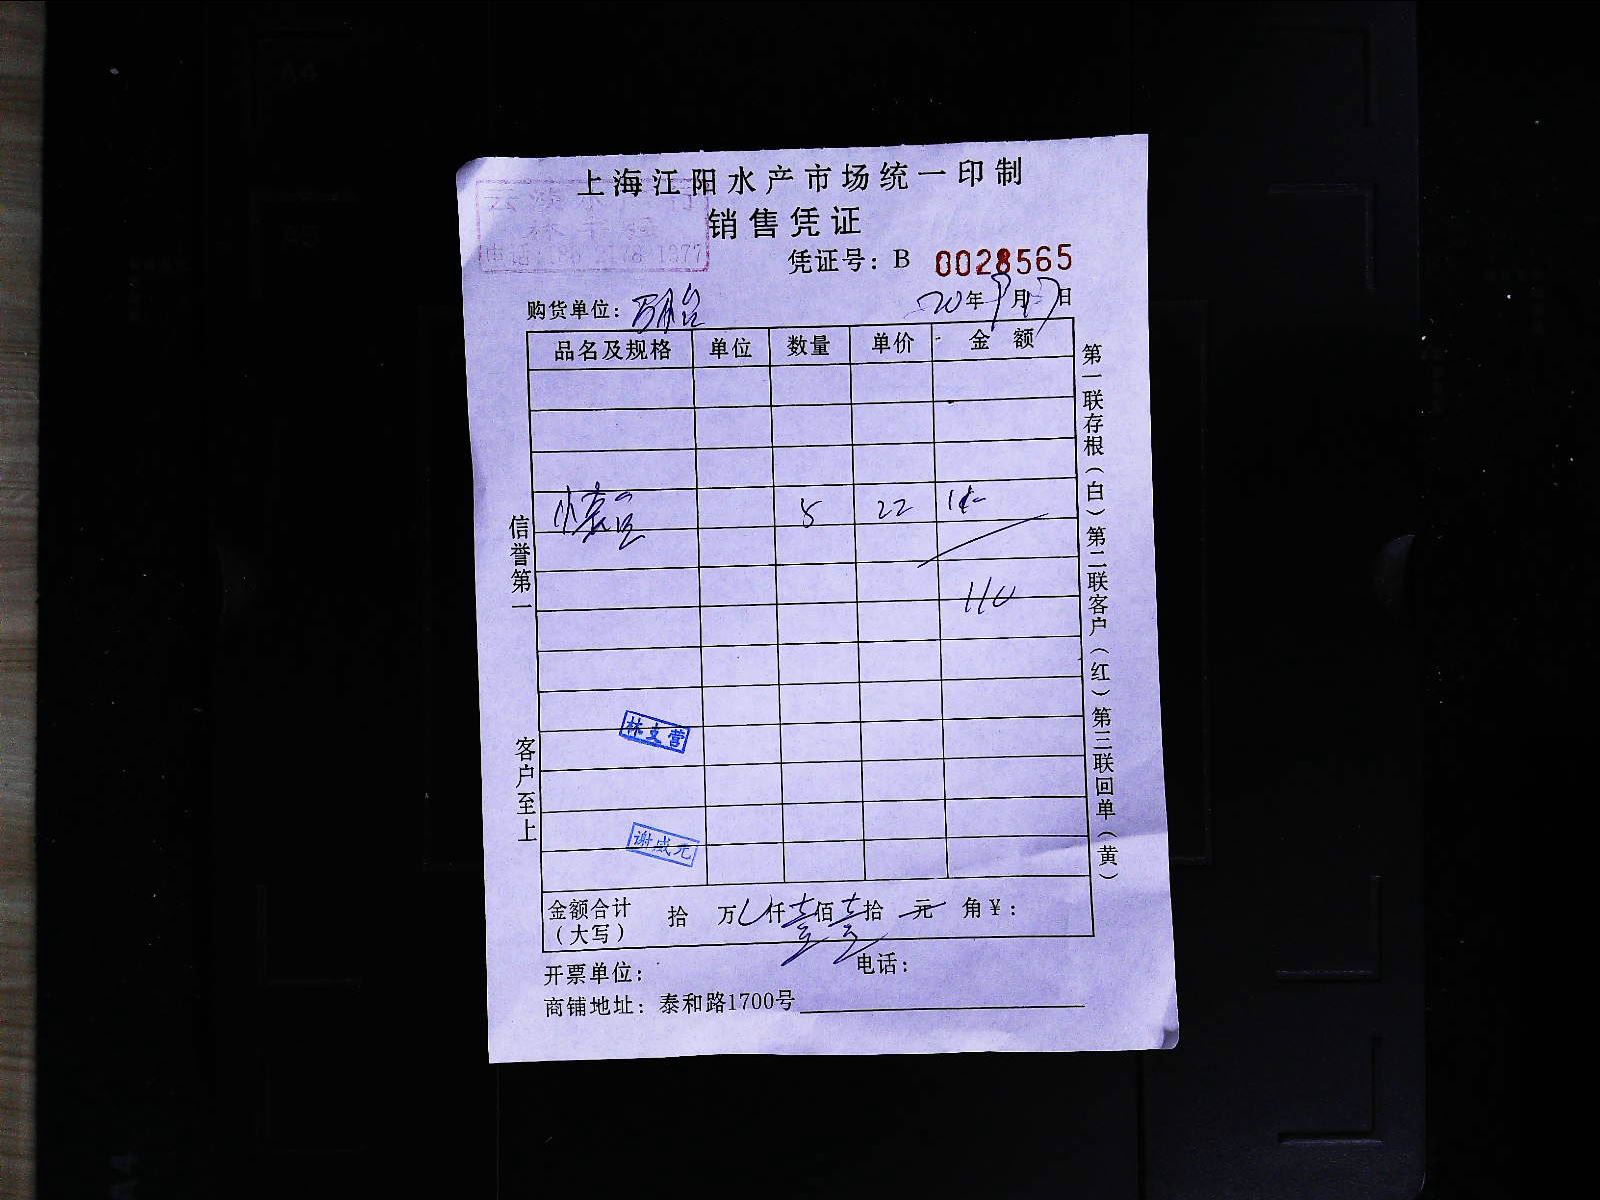 上海江阳水产市场统一印制
销售凭证
凭证号：B 0028565
购货单位： 20年9月17日
品名及规格 单位 数量 单价 金额
5 22
110
林文营
谢咸元
金额合计（大写） 拾 万 仟壹佰壹拾 元 角￥：
开票单位： 电话：
商铺地址：泰和路1700号
信誉第一
客户至上
第一联存根（白）第二联客户（红）第三联回单（黄）